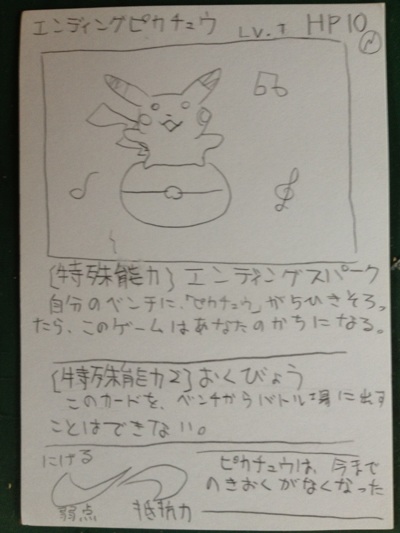 エンディングピカチュウ LV.1 HP10
[特殊能力] エンディングスパーク
自分のベンチに、「ピカチュウ」が5ひきそろっ
たら、このゲームはあなたのかちになる。
[特殊能力2] おくびょう
このカードを、ベンチからバトル場に出す
ことはできない。
にげる
弱点 抵抗力
ピカチュウは、今まで
のきおくがなくなった